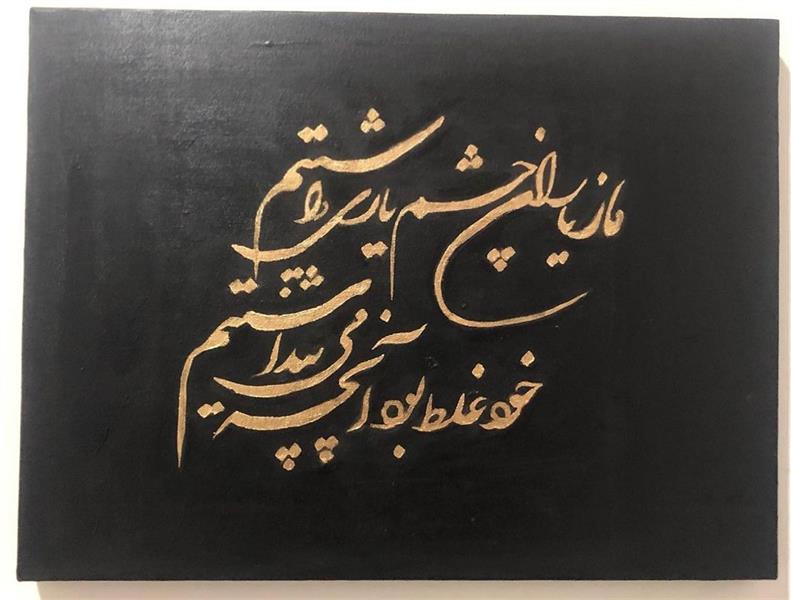 ما ز یاران چشم یاری داشتیم
خود غلط بود آنچه می پنداشتیم